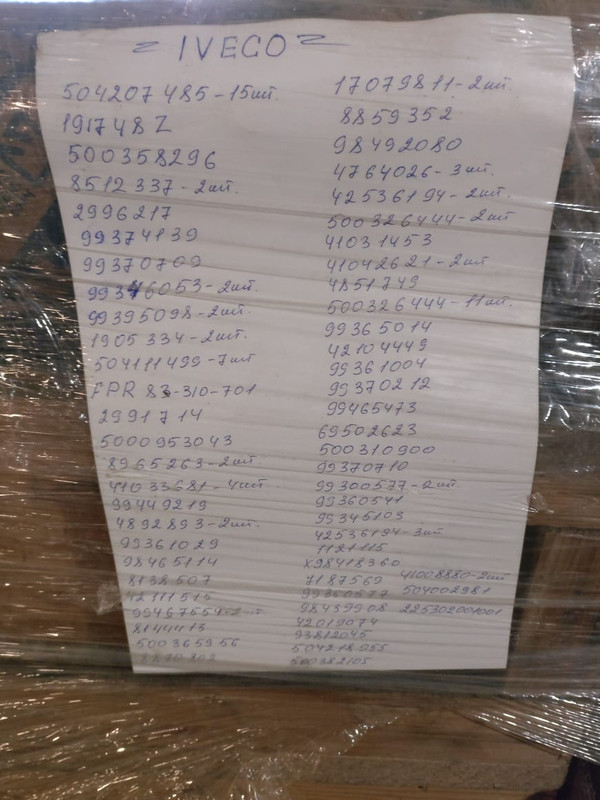 ~ IVECO ~
504207485-15шт.
191748Z
500358296
8512337-2шт.
2996217
99374139
99370709
99346053-2шт.
99395098-2шт.
1905334-2шт.
504111499-7шт
FPR 83-310-701
2991714
5000953043
8965263-2шт.
41033681-4шт
99449219
4892893-2шт.
99361029
98465114
8138507
42111515
99467554-2шт
8144413
500365956
17079811-2шт.
8859352
98492080
4764026-3шт.
42536194-2шт.
500326444-2шт
41031453
41042621-2шт
4851749
500326444-11шт.
99365014
42104449
99361004
99370212
99465473
69502623
500310900
99370710
99300577-2шт.
99360541
99345103
42536194-3шт
1121115
x98418360
7187569 41008880-2шт
99360577 504002981
98439908 225302001001
42019074
93812045
504218055
500382105